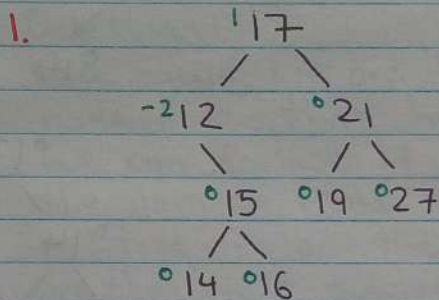 1. 1 17
-2 12 0 21
0 15 0 19 0 27
0 14 0 16